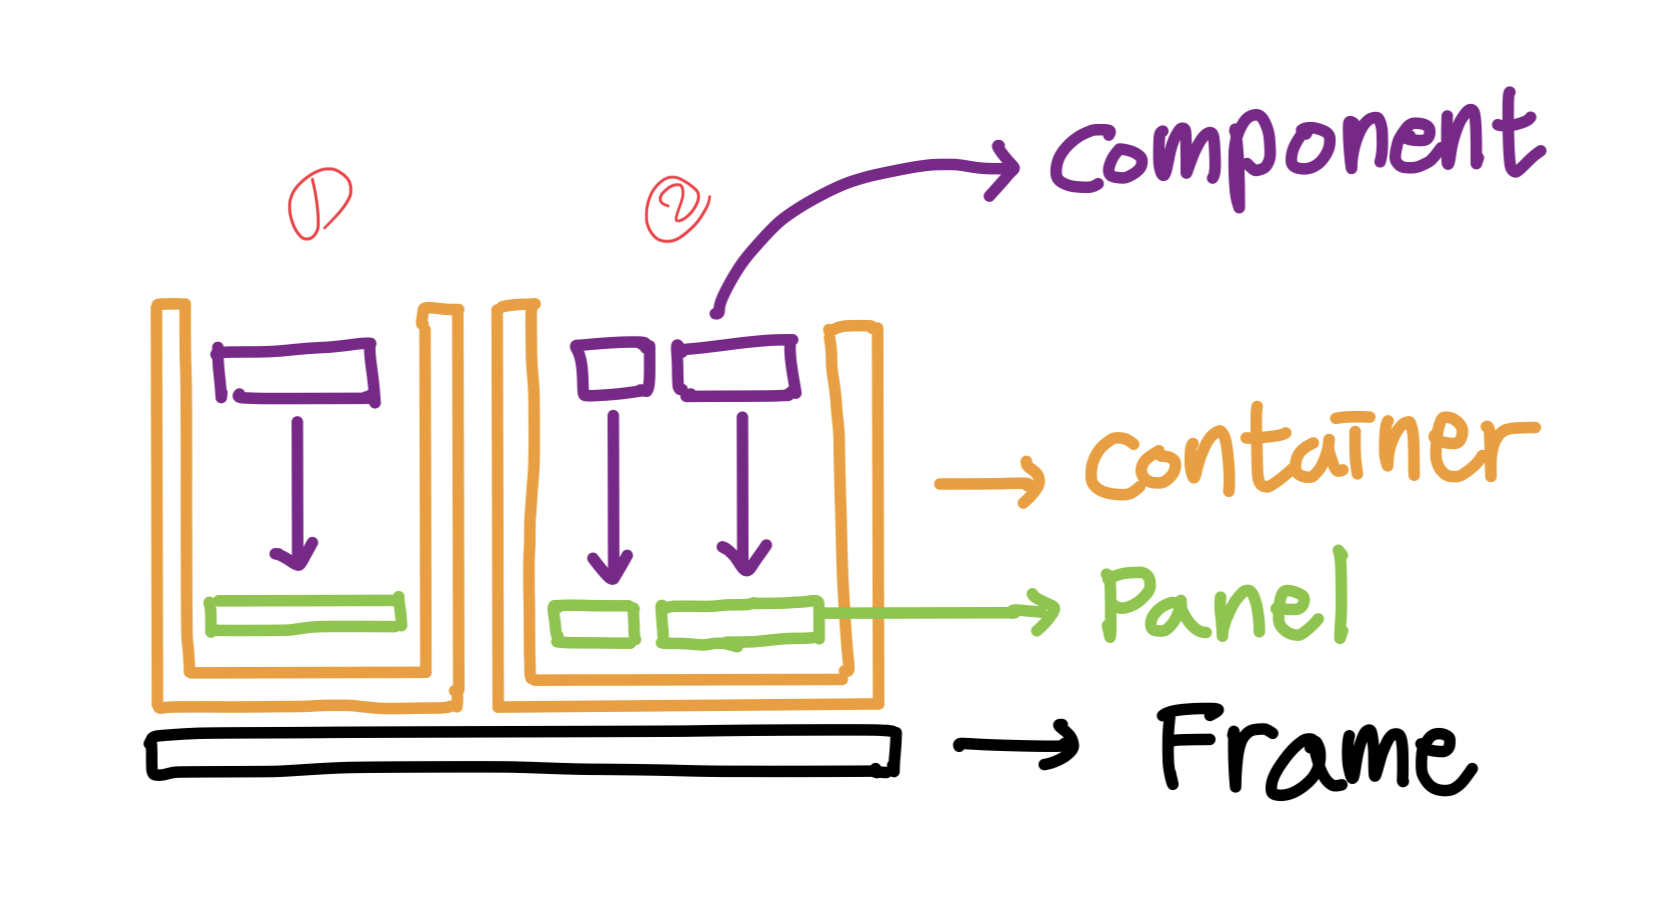 Component
① ②
Container
Panel
Frame